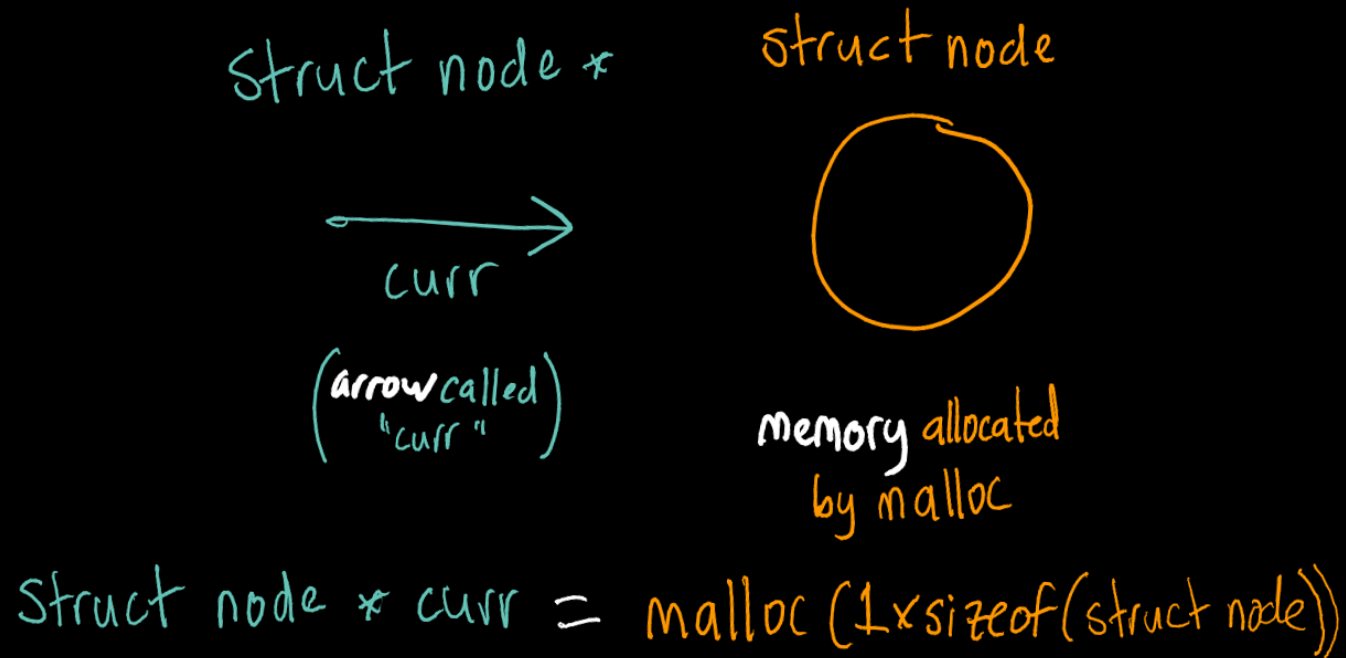 struct node *
struct node
curr
(arrow called
"curr")
memory allocated
by malloc
struct node * curr = malloc (1xsizeof(struct node))